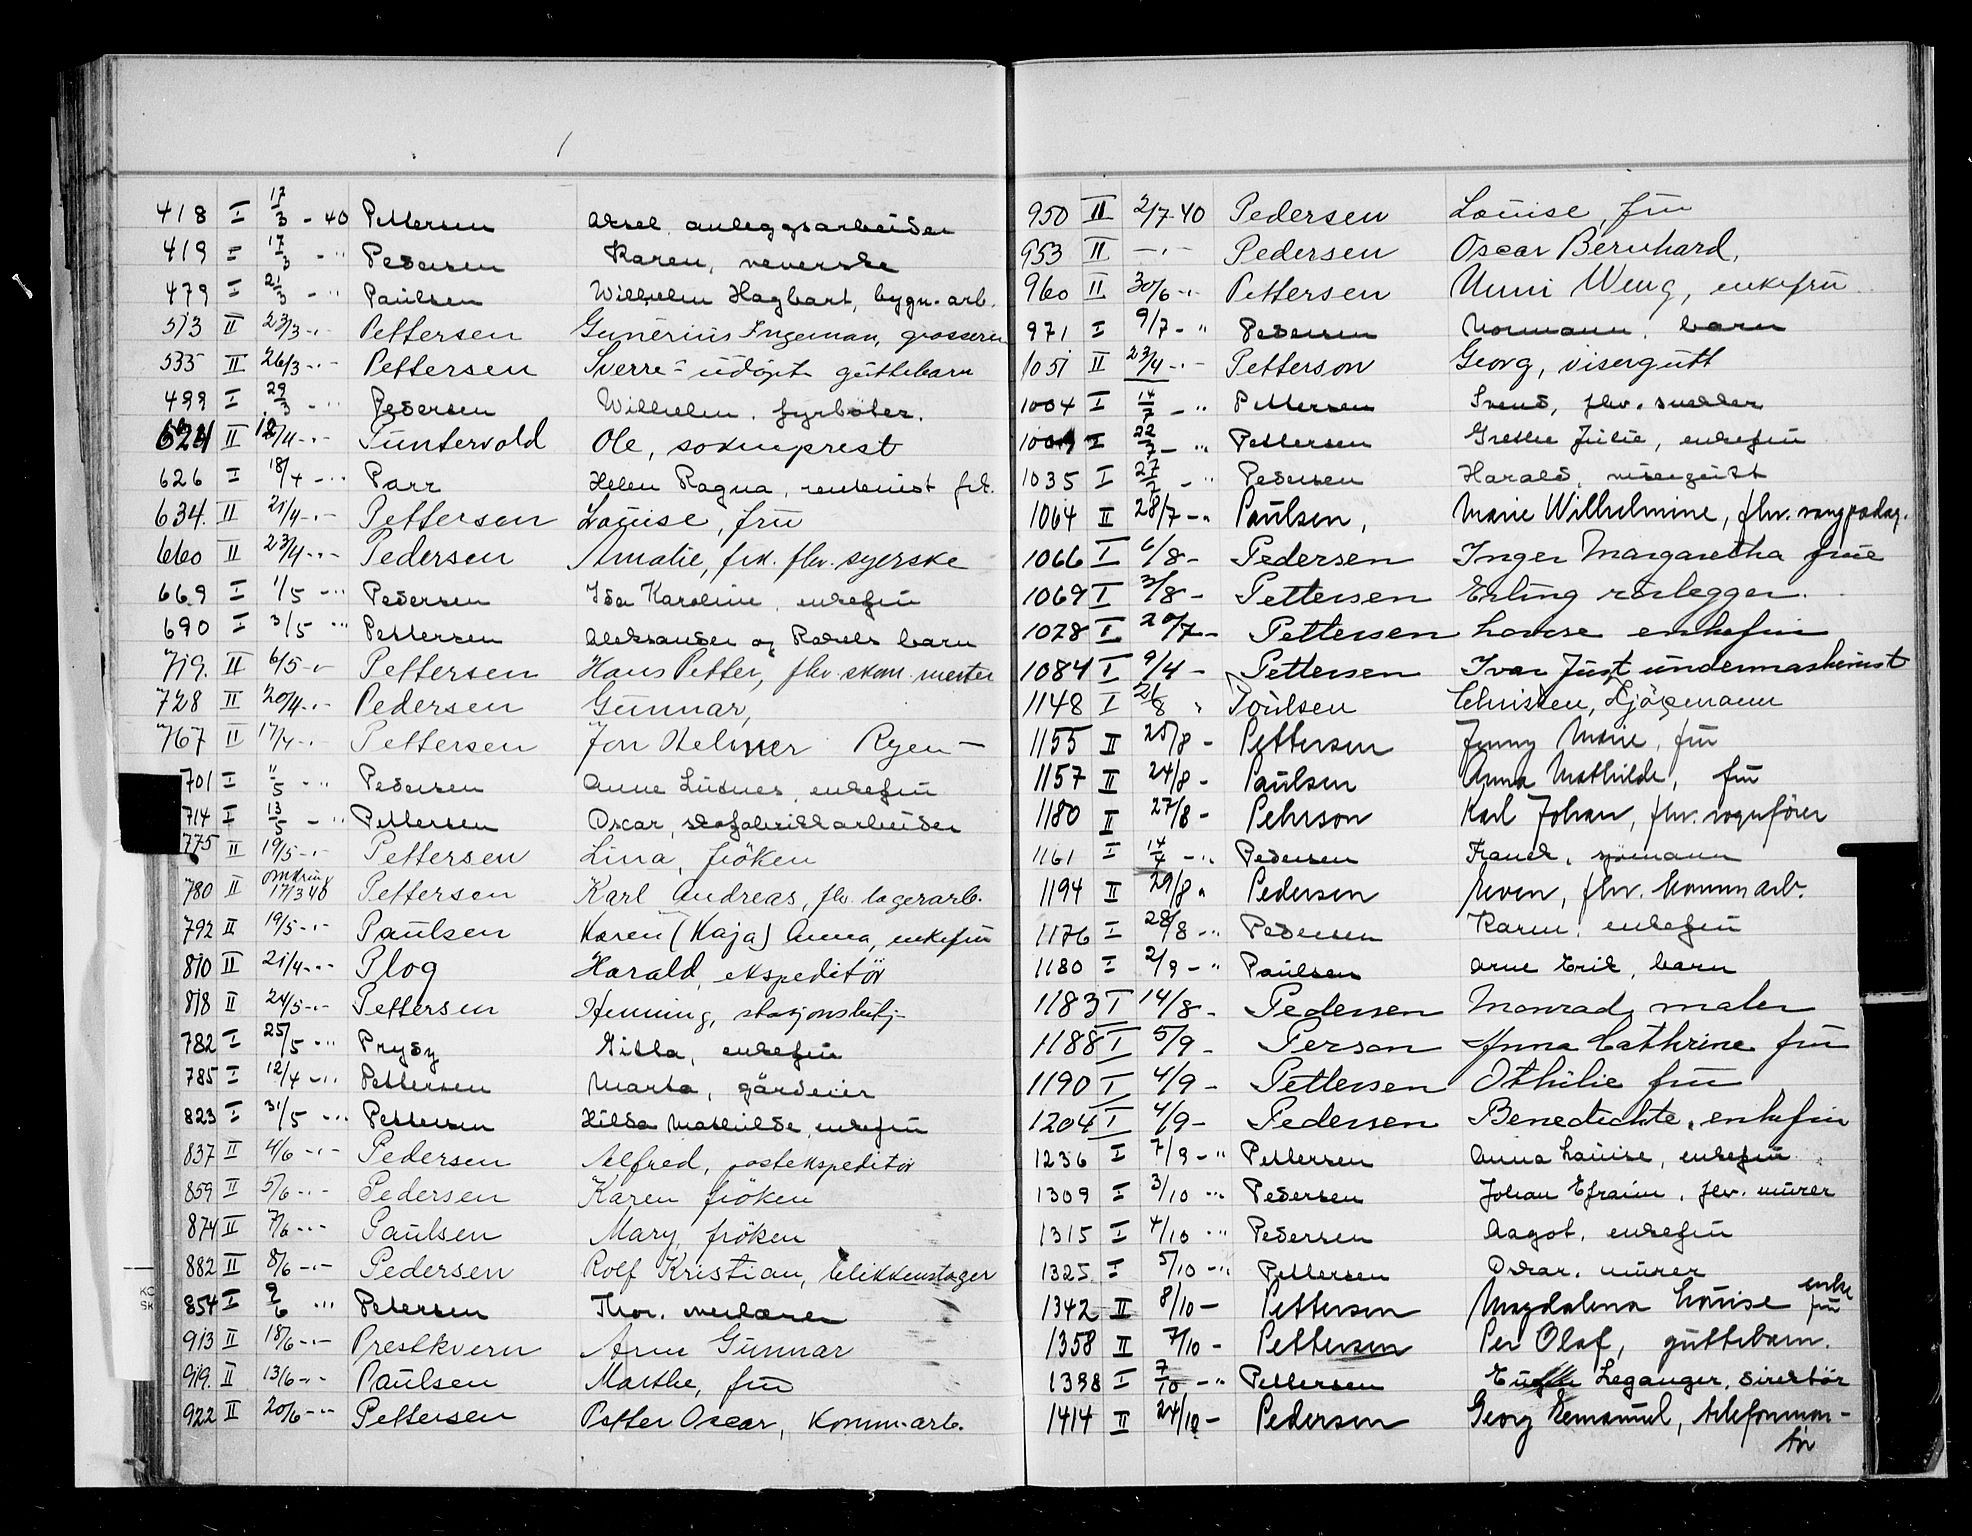 418 I 17/3 - 40 Pettersen Aksel, anleggsarbeider
419 I 17/3 - " Pedersen Karen, veverske
479 I 21/3 - " Paulsen Wilhelm Hagbart, bygn. arb.
513 II 23/3 - " Pettersen Gunerius Ingeman, grosserer
535 II 26/3 - " Pettersen Sverre - udøpt guttebarn
499 I 29/3 - " Pedersen Wilhelm, fyrbøter.
624 II /4 - " Puntervold Ole, sokneprest
626 I 18/4 - " Parr Helen Ragna, rentenist frk.
634. II 21/4 - " Pettersen Louise, fru
660 II 23/4 - " Pedersen Amalie, frk. fhv. syerske
669 I 1/5 - " Pedersen Ida Karoline, enkefru
690 I 3/5 " Pettersen Aleksander og Rakels barn
719. II 6/5 - " Pettersen Hans Petter, fhv. skom. mester
728 II 20/4 - " Pedersen Gunnar,
767 II 17/4 - " Pettersen Jon Helmer Ryen -
701 I 11/5 - " Pedersen Anne enkefru
714 I 13/5 - " Pettersen Oscar, skofabrikkarbeider
775 II 19/5 - " Pettersen Lina, frøken
780 II omkring 17/3 40 Pettersen Karl Andreas, fhv. lagerarb.
792 II 19/5 - " Paulsen Karen (Kaja) Anna, enkefru
810 II 21/4 - " Plog Harald, ekspeditör
818 II 24/5 - " Pettersen Henning, stasjonsbetj.
782 I 25/5 - " Prydz Gitta, enkefru
785 I 12/4 - " Pettersen Marta, gårdeier
823 I 31/5 - " Pettersen Hilda Mathilde, enkefru
837 II 4/6 - " Pedersen Alfred, postekspeditör
859 II 5/6 - " Pedersen Karen frøken
874 II 7/6 - " Paulsen Mary, frøken
882 II 8/6 - " Pedersen Rolf Kristian, blikkenslager
854 I 9/6 " Petersen Thor,
913 II 18/6 - " Prestkvern Arne Gunnar
919. II 13/6 - " Paulsen Marthe, fru
922 II 20/6 - " Pettersen Petter Oscar, Komm. arb.
950 II 2/7-40 Pedersen Louise, fru
953 II - " - Pedersen Oscar Bernhard,
960 II 30/6 - " Pettersen Unni Weng, enkefru
971 I 9/7 - " Pedersen Normann, barn
1051 II 23/4 - " Petterson Georg, visergutt
1004 I 14/7 - " Pettersen Svend, fhv. snekker
I 22/7 - " Pettersen Grethe Julie, enkefru
1035 I 27/7 - " Pedersen Harald, visergutt
1064 II 28/7 - " Paulsen, Marie Wilhelmine, fhv. sangpedag.
1066 I 6/8 - Pedersen Inger Margaretha frue
1069 I 3/8 - Pettersen Erling rørlegger.
1078 I 20/7 - Pettersen Lovise enkefru
1084 I 9/4 - Pettersen Ivar Just undermaskinist
1148 I 21/8 " Poulsen Christen, Sjømann
1155 II 25/8 - Pettersen Jenny Marie, fru
1157 II 24/8 - Paulsen Anna Mathilde, fru
1180 II 27/8 - Pehrson Karl Johan, fhv. vognfører
1161 I 14/7 - " Pedersen Franck, sjømann
1194 II 29/8 " Pedersen Even, fhv. komm arb.
1176 I 28/8 - " Pedersen Karen, enkefru
1180 I 2/9 - " Paulsen Arne Erik, barn
1183 I 14/8 - Pedersen Monrad, maler
1188 I 5/9 - Person Anna Cathrine fru
1190 I 4/9 - Pettersen Othilie fru
1204 I 4/9 - Pedersen Benedichte, enkefru
1236 I 7/9 - " Pettersen Anna Louise, enkefru
1309 I 3/10 - " Pedersen Johan Efraim, fhv. murer
1315 I 4/10 " Pedersen Aagot, enkefru
1325 I 5/10 - " Pettersen Oskar, murer
1342 II 8/10 - Pettersen Magdalena Louise enke
fru
1358 II 7/10 - Pettersen Per Olaf, guttebarn.
1398 I 7/10 - " Pettersen Leganger, direktør
1414 II 24/10 - Pedersen Georg Emanuel, telefonmon-
tør